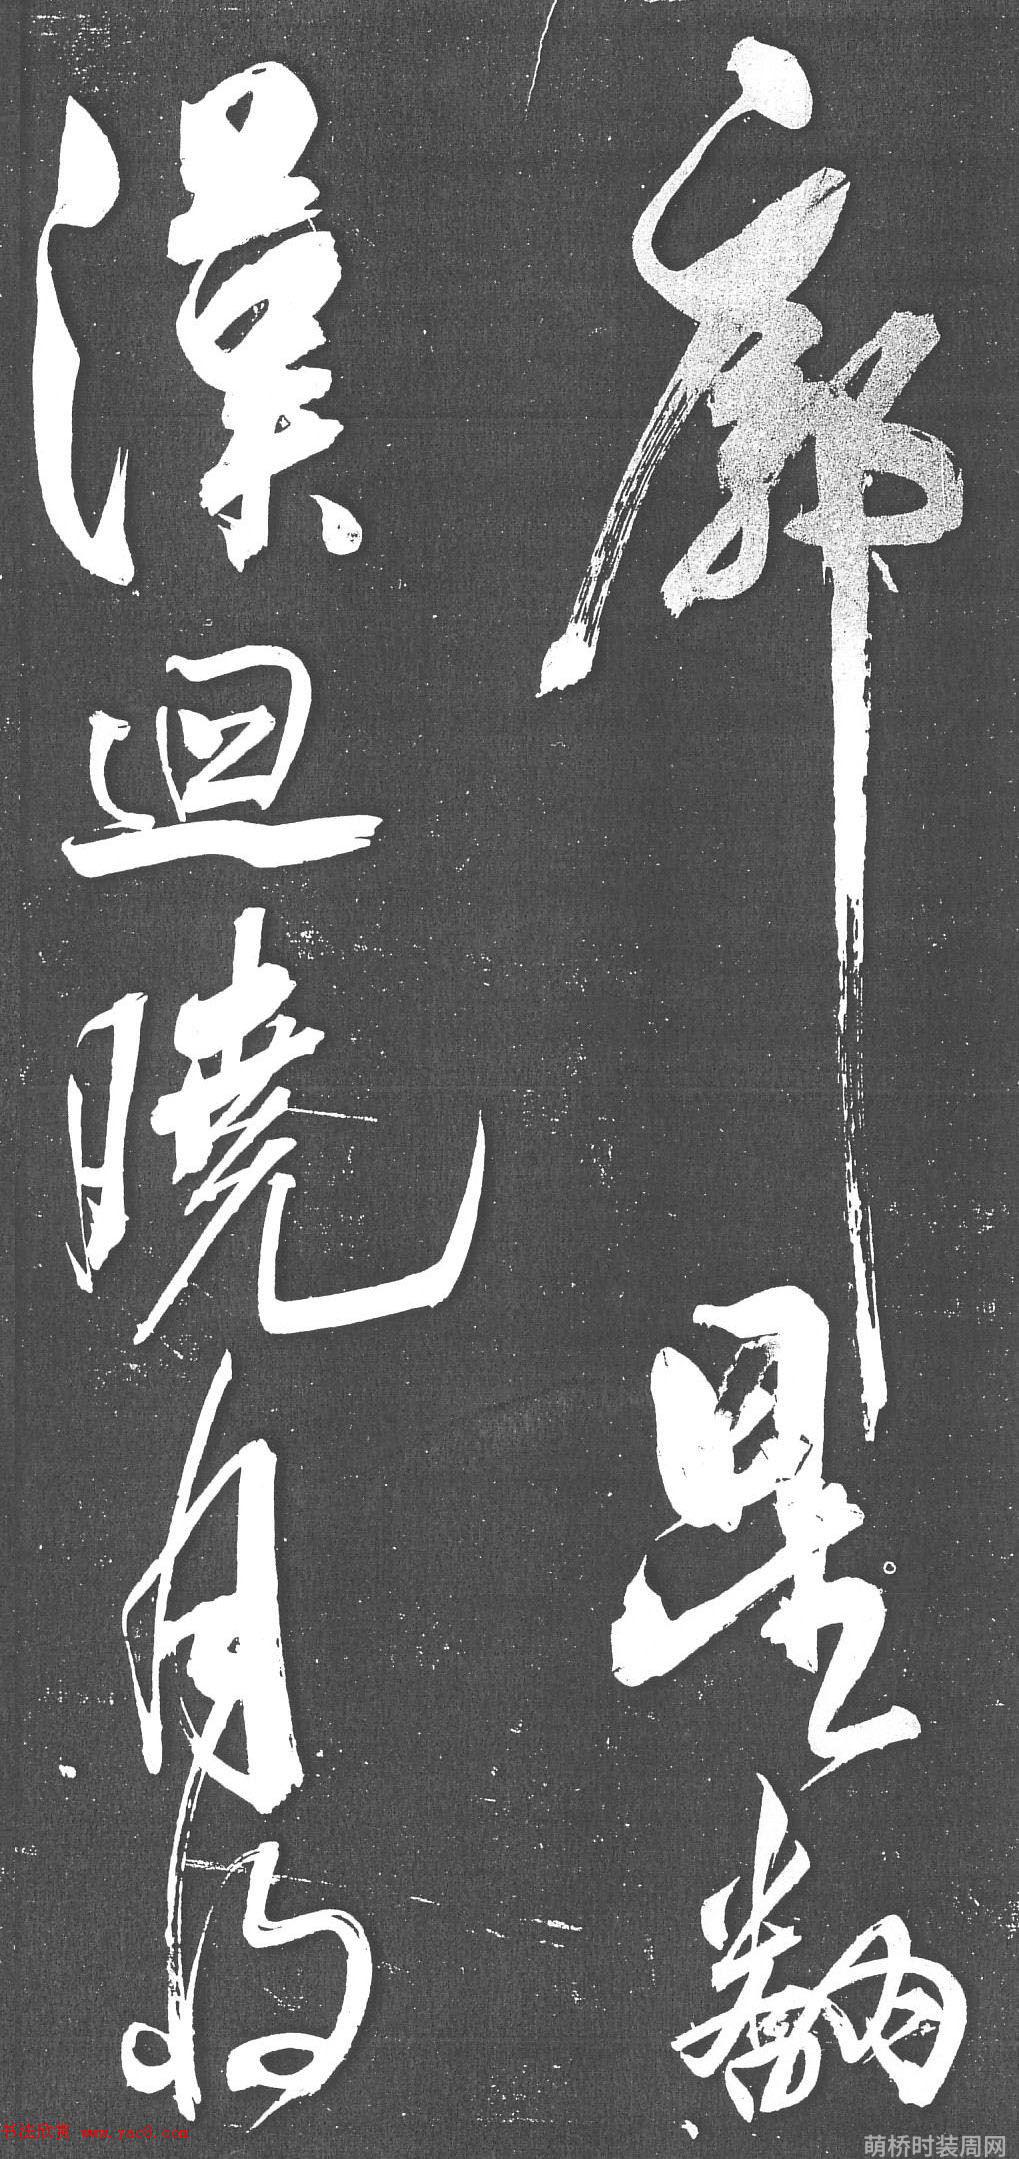 廓星翻
漢迴曉月將
书法欣赏 www.yac8.com
萌桥时装周网